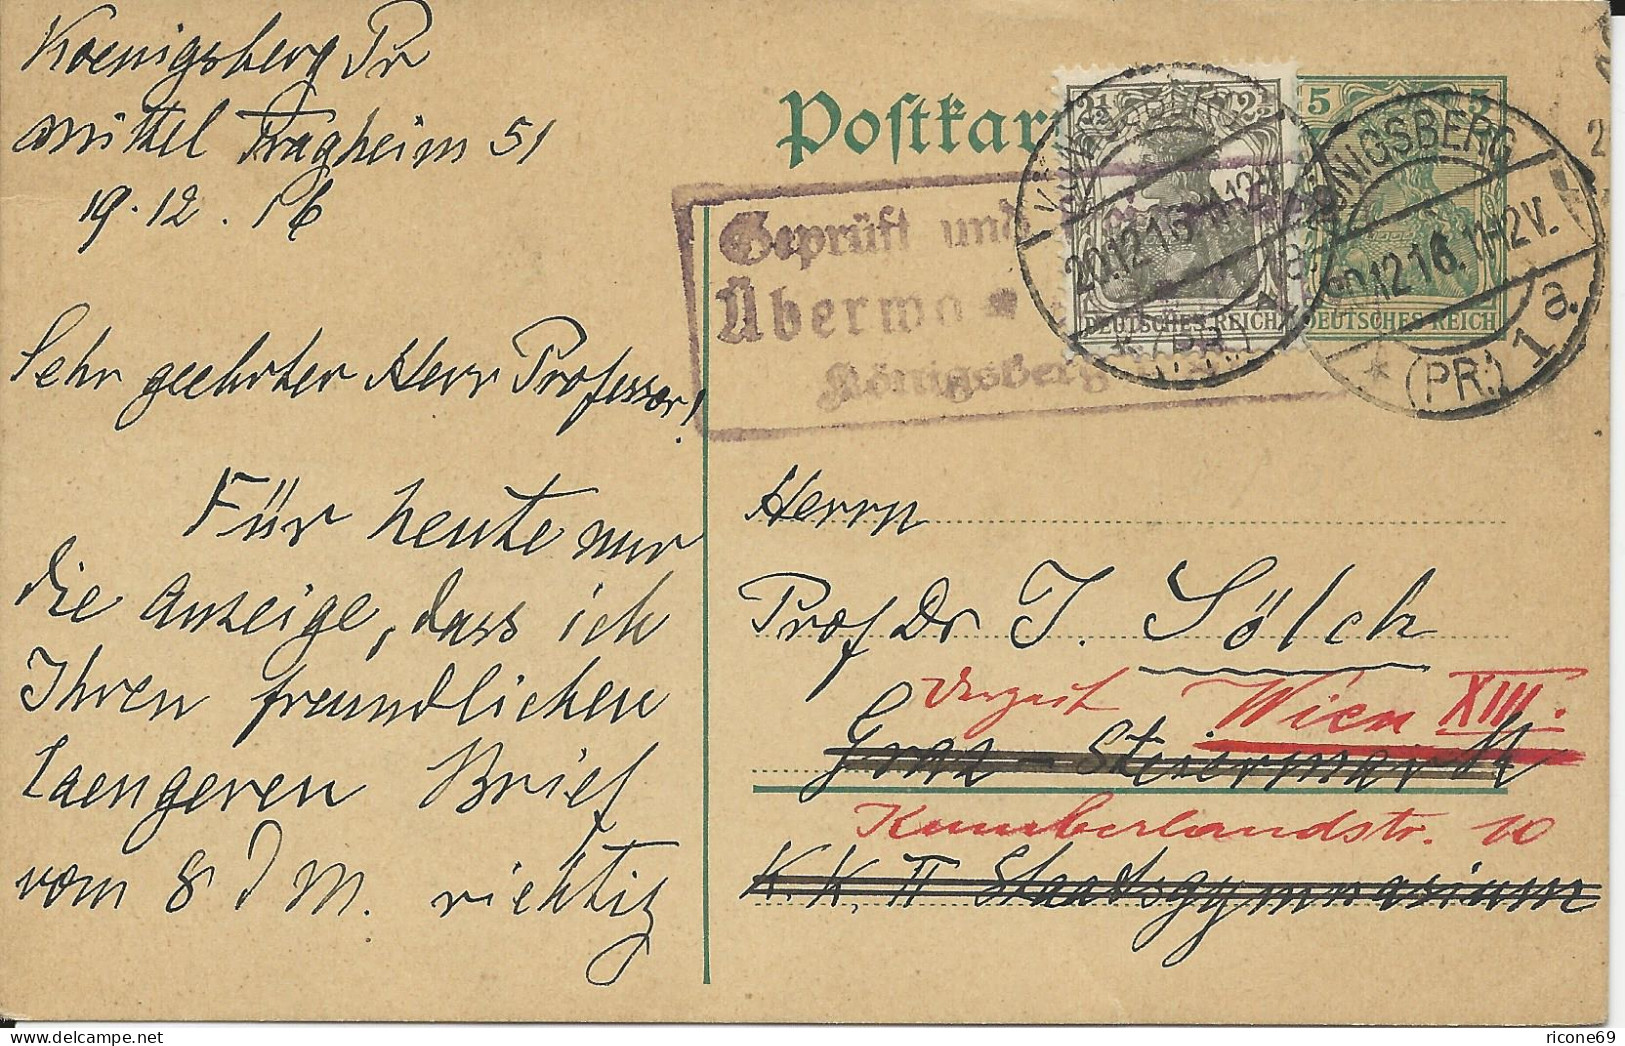 Koenigsberg Pr
Mittel Tragheim 51
19.12.16
Sehr geehrter Herr Professor!
Für heute nur
die Anzeige, dass ich
Ihren freundlichen
laengeren Brief
vom 8 d M. richtig
Postkar
Geprüft und
Überwa
Königsberg
2½ 2½
DEUTSCHES REICH
5 5
DEUTSCHES REICH
KÖNIGSBERG
20.12.16.11-12V.
(PR.)
KÖNIGSBERG
20.12.16.11-12V.
* (PR.) 1 a.
Herrn
Prof Dr J. Sölch
Wien XIII.
Graz Steiermark
Kumberlandstr. 10
K. K. II Staatsgymnasium
delcampe.net
ricone69